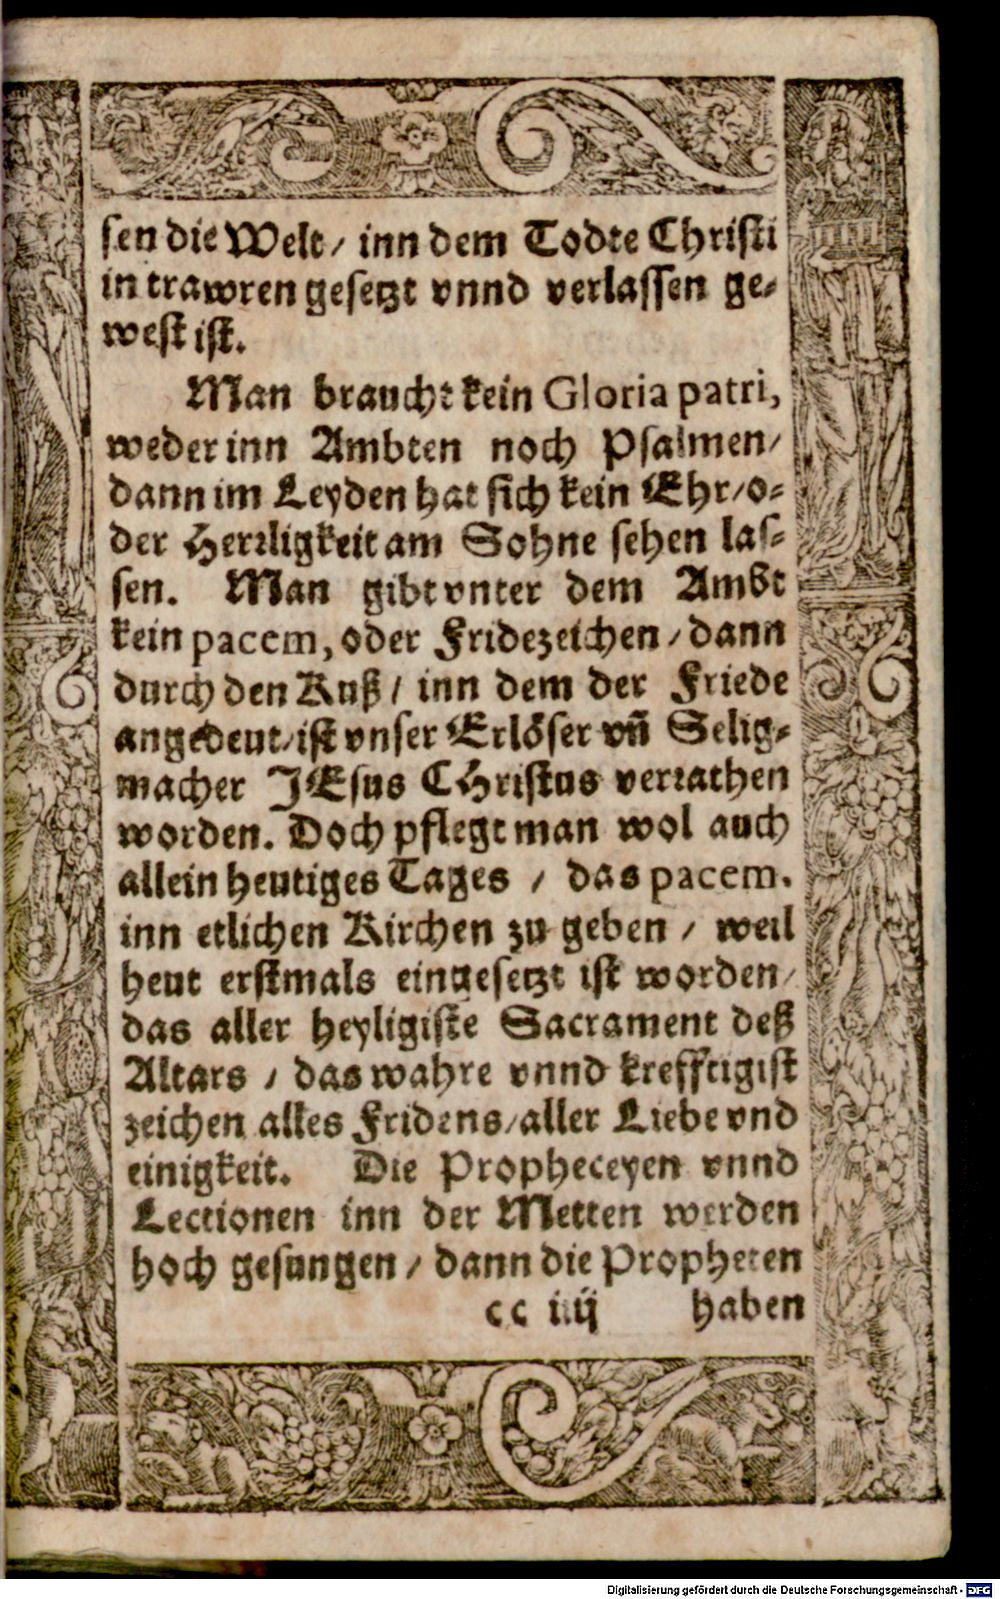 sen die Welt / inn dem Todte Christi
in trawren gesetzt vnnd verlassen ge-
west ist.
Man braucht kein Gloria patri,
weder inn Ambten noch Psalmen /
dann im Leyden hat sich kein Ehr / o-
der Herrligkeit am Sohne sehen las-
sen. Man gibt vnter dem Ambt
kein pacem, oder Fridezeichen / dann
durch den Kuß / inn dem der Friede
angedeut / ist vnser Erlöser vñ Selig-
macher JEsus CHristus verrathen
worden. Doch pflegt man wol auch
allein heutiges Tages / das pacem.
inn etlichen Kirchen zu geben / weil
heut erstmals eingesetzt ist worden /
das aller heyligiste Sacrament deß
Altars / das wahre vnnd krefftigist
zeichen alles Fridens / aller Liebe vnd
einigkeit. Die Propheceyen vnnd
Lectionen inn der Metten werden
hoch gesungen / dann die Propheten
cc iiij haben
Digitalisierung gefördert durch die Deutsche Forschungsgemeinschaft - DFG